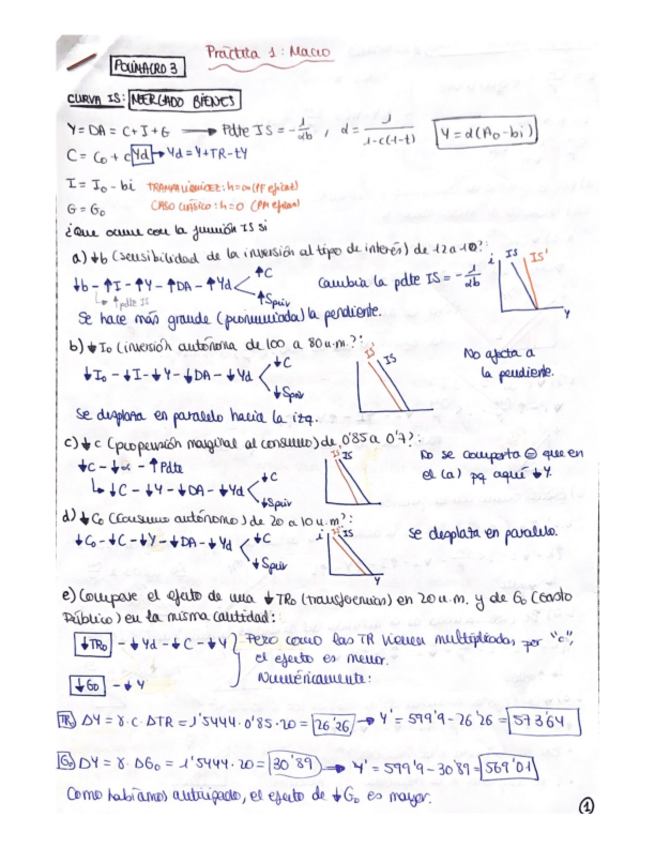 Práctica 1: Macro
POLIMACRO 3
CURVA IS: MERCADO BIENES
Y = DA = C + I + G → Pdte IS = - 1/αb , α = 1/1-c(1-t) Y = α(A₀ - bi)
C = C₀ + cYd → Yd = Y + TR - tY
I = I₀ - bi TRAMPA LIQUIDEZ: h=∞ (PF eficaz)
G = G₀ CASO CLÁSICO: h=0 (PM eficaz)
¿Que ocurre con la función IS si
a) ↓b (sensibilidad de la inversión al tipo de interés) de 12 a 10?:
i IS IS'
↓b - ↑I - ↑Y - ↑DA - ↑Yd < ↑C ↑Spriv Cambia la pdte IS = - 1/αb
↳ ↑pdte IS
Y
Se hace más grande (pronunciada) la pendiente.
b) ↓I₀ (inversión autónoma de 100 a 80 u.m.?:
IS' IS
No afecta a
↓I₀ - ↓I - ↓Y - ↓DA - ↓Yd < ↓C ↓Spriv la pendiente.
Se desplaza en paralelo hacia la izq.
c) ↓c (propensión marginal al consumo) de 0'85 a 0'7?:
IS' IS
↓c - ↓α - ↑Pdte no se comporta = que en
↳ ↓C - ↓Y - ↓DA - ↓Yd < ↓C ↓Spriv el (a) pq aquí ↓Y.
d) ↓C₀ (consumo autónomo) de 20 a 10 u.m?:
↓C₀ - ↓C - ↓Y - ↓DA - ↓Yd < ↓C ↓Spriv i IS' IS Y se desplaza en paralelo.
e) Compare el efecto de una ↓TR₀ (transferencias) en 20 u.m. y de G₀ (Gasto
Público) en la misma cantidad:
↓TR₀ - ↓Yd - ↓C - ↓Y } Pero como las TR vienen multiplicadas por "c",
el efecto es menor.
↓G₀ - ↓Y Numéricamente:
TR₀ ΔY = γ · c · ΔTR = 1'5444 · 0'85 · 20 = 26'26 → Y' = 599'9 - 26'26 = 573'64
G₀ ΔY = γ · ΔG₀ = 1'5444 · 20 = 30'89 → Y' = 599'9 - 30'89 = 569'01
Como habíamos anticipado, el efecto de ↓G₀ es mayor.
1